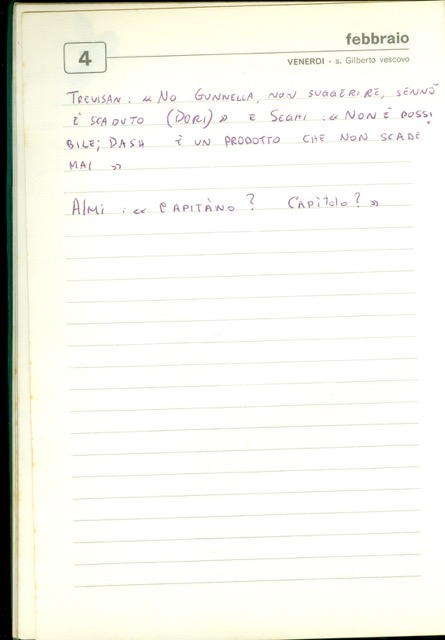 febbraio
4
VENERDI - s. Gilberto vescovo
TREVISAN : « NO GUNNELLA, NON SUGGERIRE, SENNÒ
È SCADUTO (DORI) » E SEGHI : « NON È POSSI
BILE; DASH È UN PRODOTTO CHE NON SCADE
MAI »
ALMI : « CAPITÀNO ? CAPÌTOLO ? »